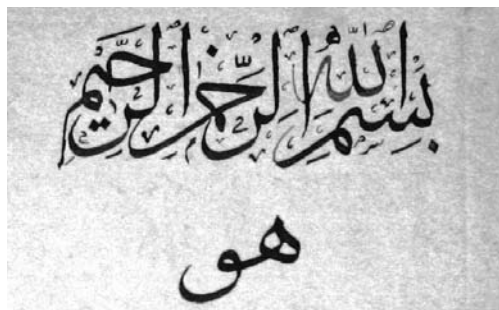 بسم الله الرحمن الرحيم
هو